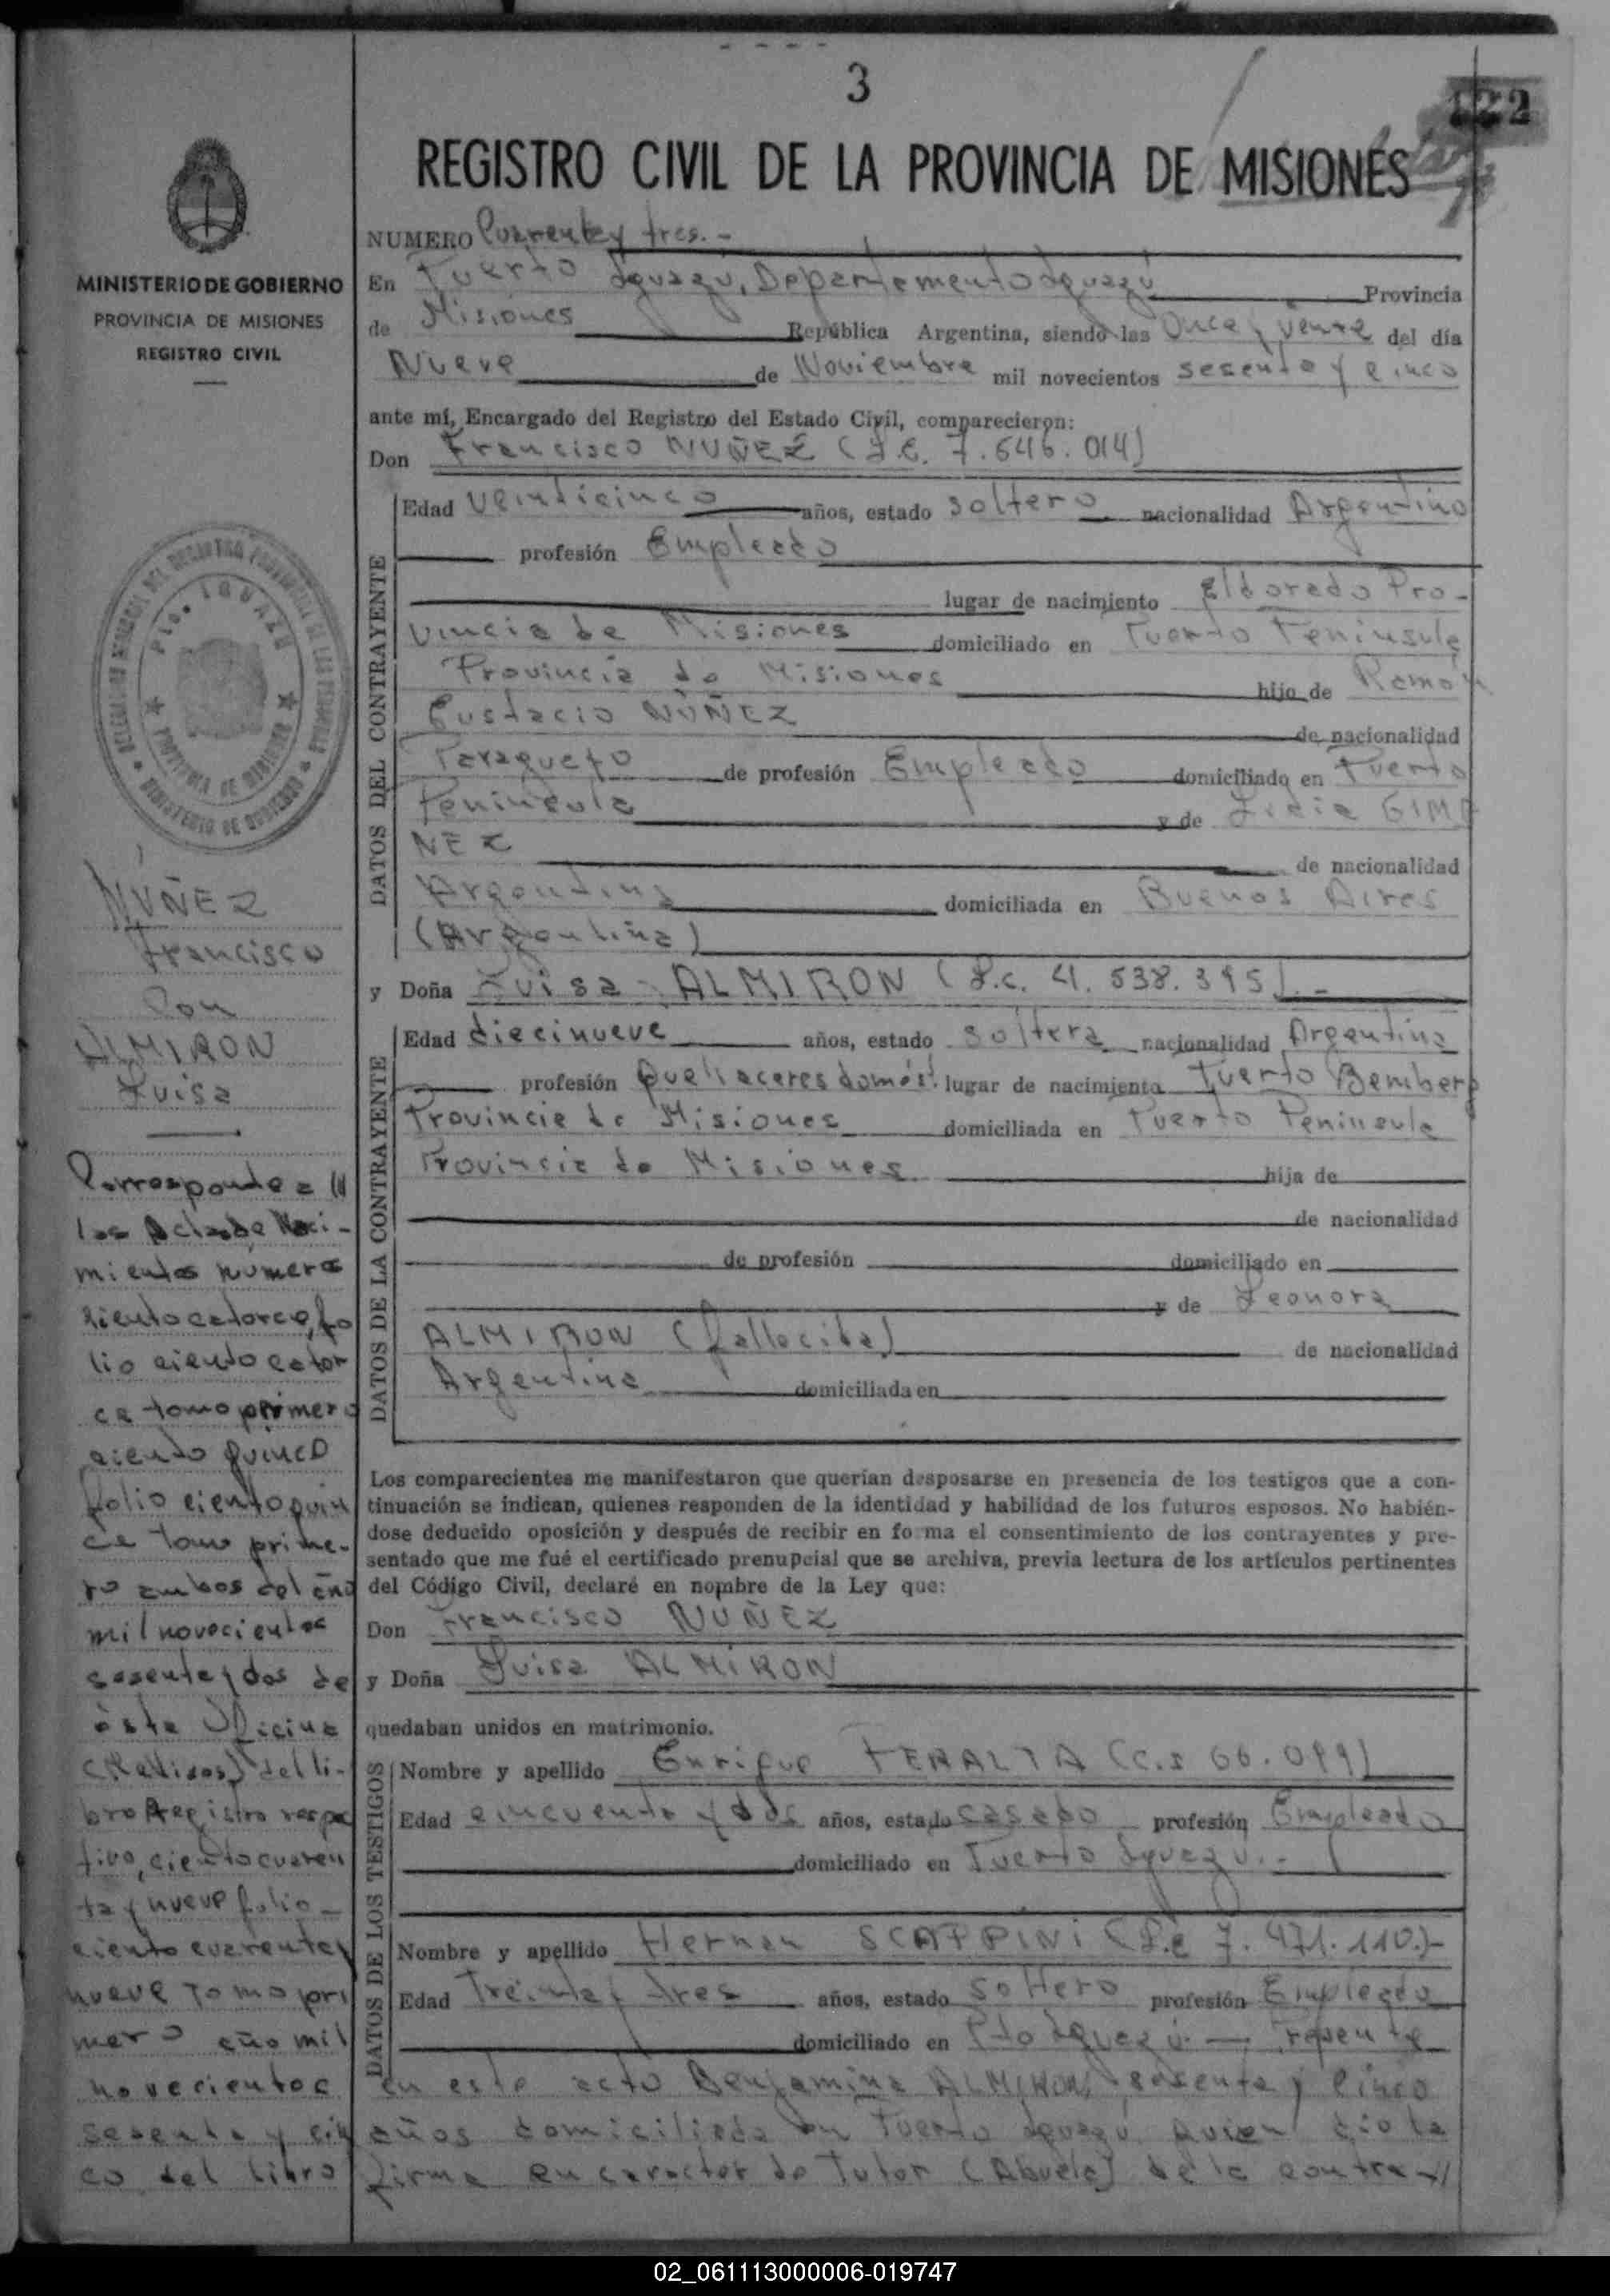 3
122
REGISTRO CIVIL DE LA PROVINCIA DE MISIONES
MINISTERIO DE GOBIERNO
PROVINCIA DE MISIONES
REGISTRO CIVIL
NUMERO Cuarenta y tres. -
En Puerto Iguazú, Departamento Iguazú Provincia
de Misiones República Argentina, siendo las Once y veinte del día
Nueve de Noviembre mil novecientos sesenta y cinco
ante mí, Encargado del Registro del Estado Civil, comparecieron:
Don Francisco NUÑEZ (L.E. 7.646.014)
DATOS DEL CONTRAYENTE
Edad veinticinco años, estado soltero nacionalidad Argentino
profesión Empleado
lugar de nacimiento Eldorado Pro-
vincia de Misiones domiciliado en Puerto Peninsula
Provincia de Misiones hijo de Ramón
Eustacio NUÑEZ de nacionalidad
Paraguayo de profesión Empleado domiciliado en Puerto
Peninsula y de Lidia GIME
NEZ de nacionalidad
Argentina domiciliada en Buenos Aires
(Argentina)
y Doña Luisa ALMIRON (L.c. 4.538.395). -
DATOS DE LA CONTRAYENTE
Edad diecinueve años, estado soltera nacionalidad Argentina
profesión Quehaceres domést. lugar de nacimiento Puerto Bemberg
Provincia de Misiones domiciliada en Puerto Peninsula
Provincia de Misiones hija de
de nacionalidad
de profesión domiciliado en
y de Leonora
ALMIRON (fallecida) de nacionalidad
Argentina domiciliada en
Los comparecientes me manifestaron que querían desposarse en presencia de los testigos que a con-
tinuación se indican, quienes responden de la identidad y habilidad de los futuros esposos. No habién-
dose deducido oposición y después de recibir en fo ma el consentimiento de los contrayentes y pre-
sentado que me fué el certificado prenupcial que se archiva, previa lectura de los artículos pertinentes
del Código Civil, declaré en nombre de la Ley que:
Don Francisco NUÑEZ
y Doña Luisa ALMIRON
quedaban unidos en matrimonio.
DATOS DE LOS TESTIGOS
Nombre y apellido Enrique PERALTA (c.I 66.099)
Edad cincuenta y dos años, estado casado profesión Empleado
domiciliado en Puerto Iguazú. -
Nombre y apellido Hernan SCAPPINI (L.E 7.471.110.)-
Edad Treinta y tres años, estado soltero profesión Empleado
domiciliado en Pto Iguazú. — Presente
en este acto Benjamina ALMIRON, sesenta y cinco
años domiciliada en Puerto Iguazú quien dio la
firma en caracter de Tutor (Abuela) de la contra-//
Pto. IGUAZU
PROVINCIA DE MISIONES
MINISTERIO DE GOBIERNO
NUÑEZ
Francisco
Con
ALMIRON
Luisa
Corresponde a
las Actas de Naci-
mientos número
ciento catorce, fo
lio ciento cator
ce tomo primero
ciento quince
folio ciento quin
ce tomo prime-
ro ambos del año
mil novecientos
sesenta y dos de
ésta Oficina
del li-
bro Registro respec
tivo, ciento cuaren
ta y nueve folio
ciento cuarenta y
nueve Tomo pri
mero año mil
novecientos
sesenta y cin
co del libro
02_061113000006-019747